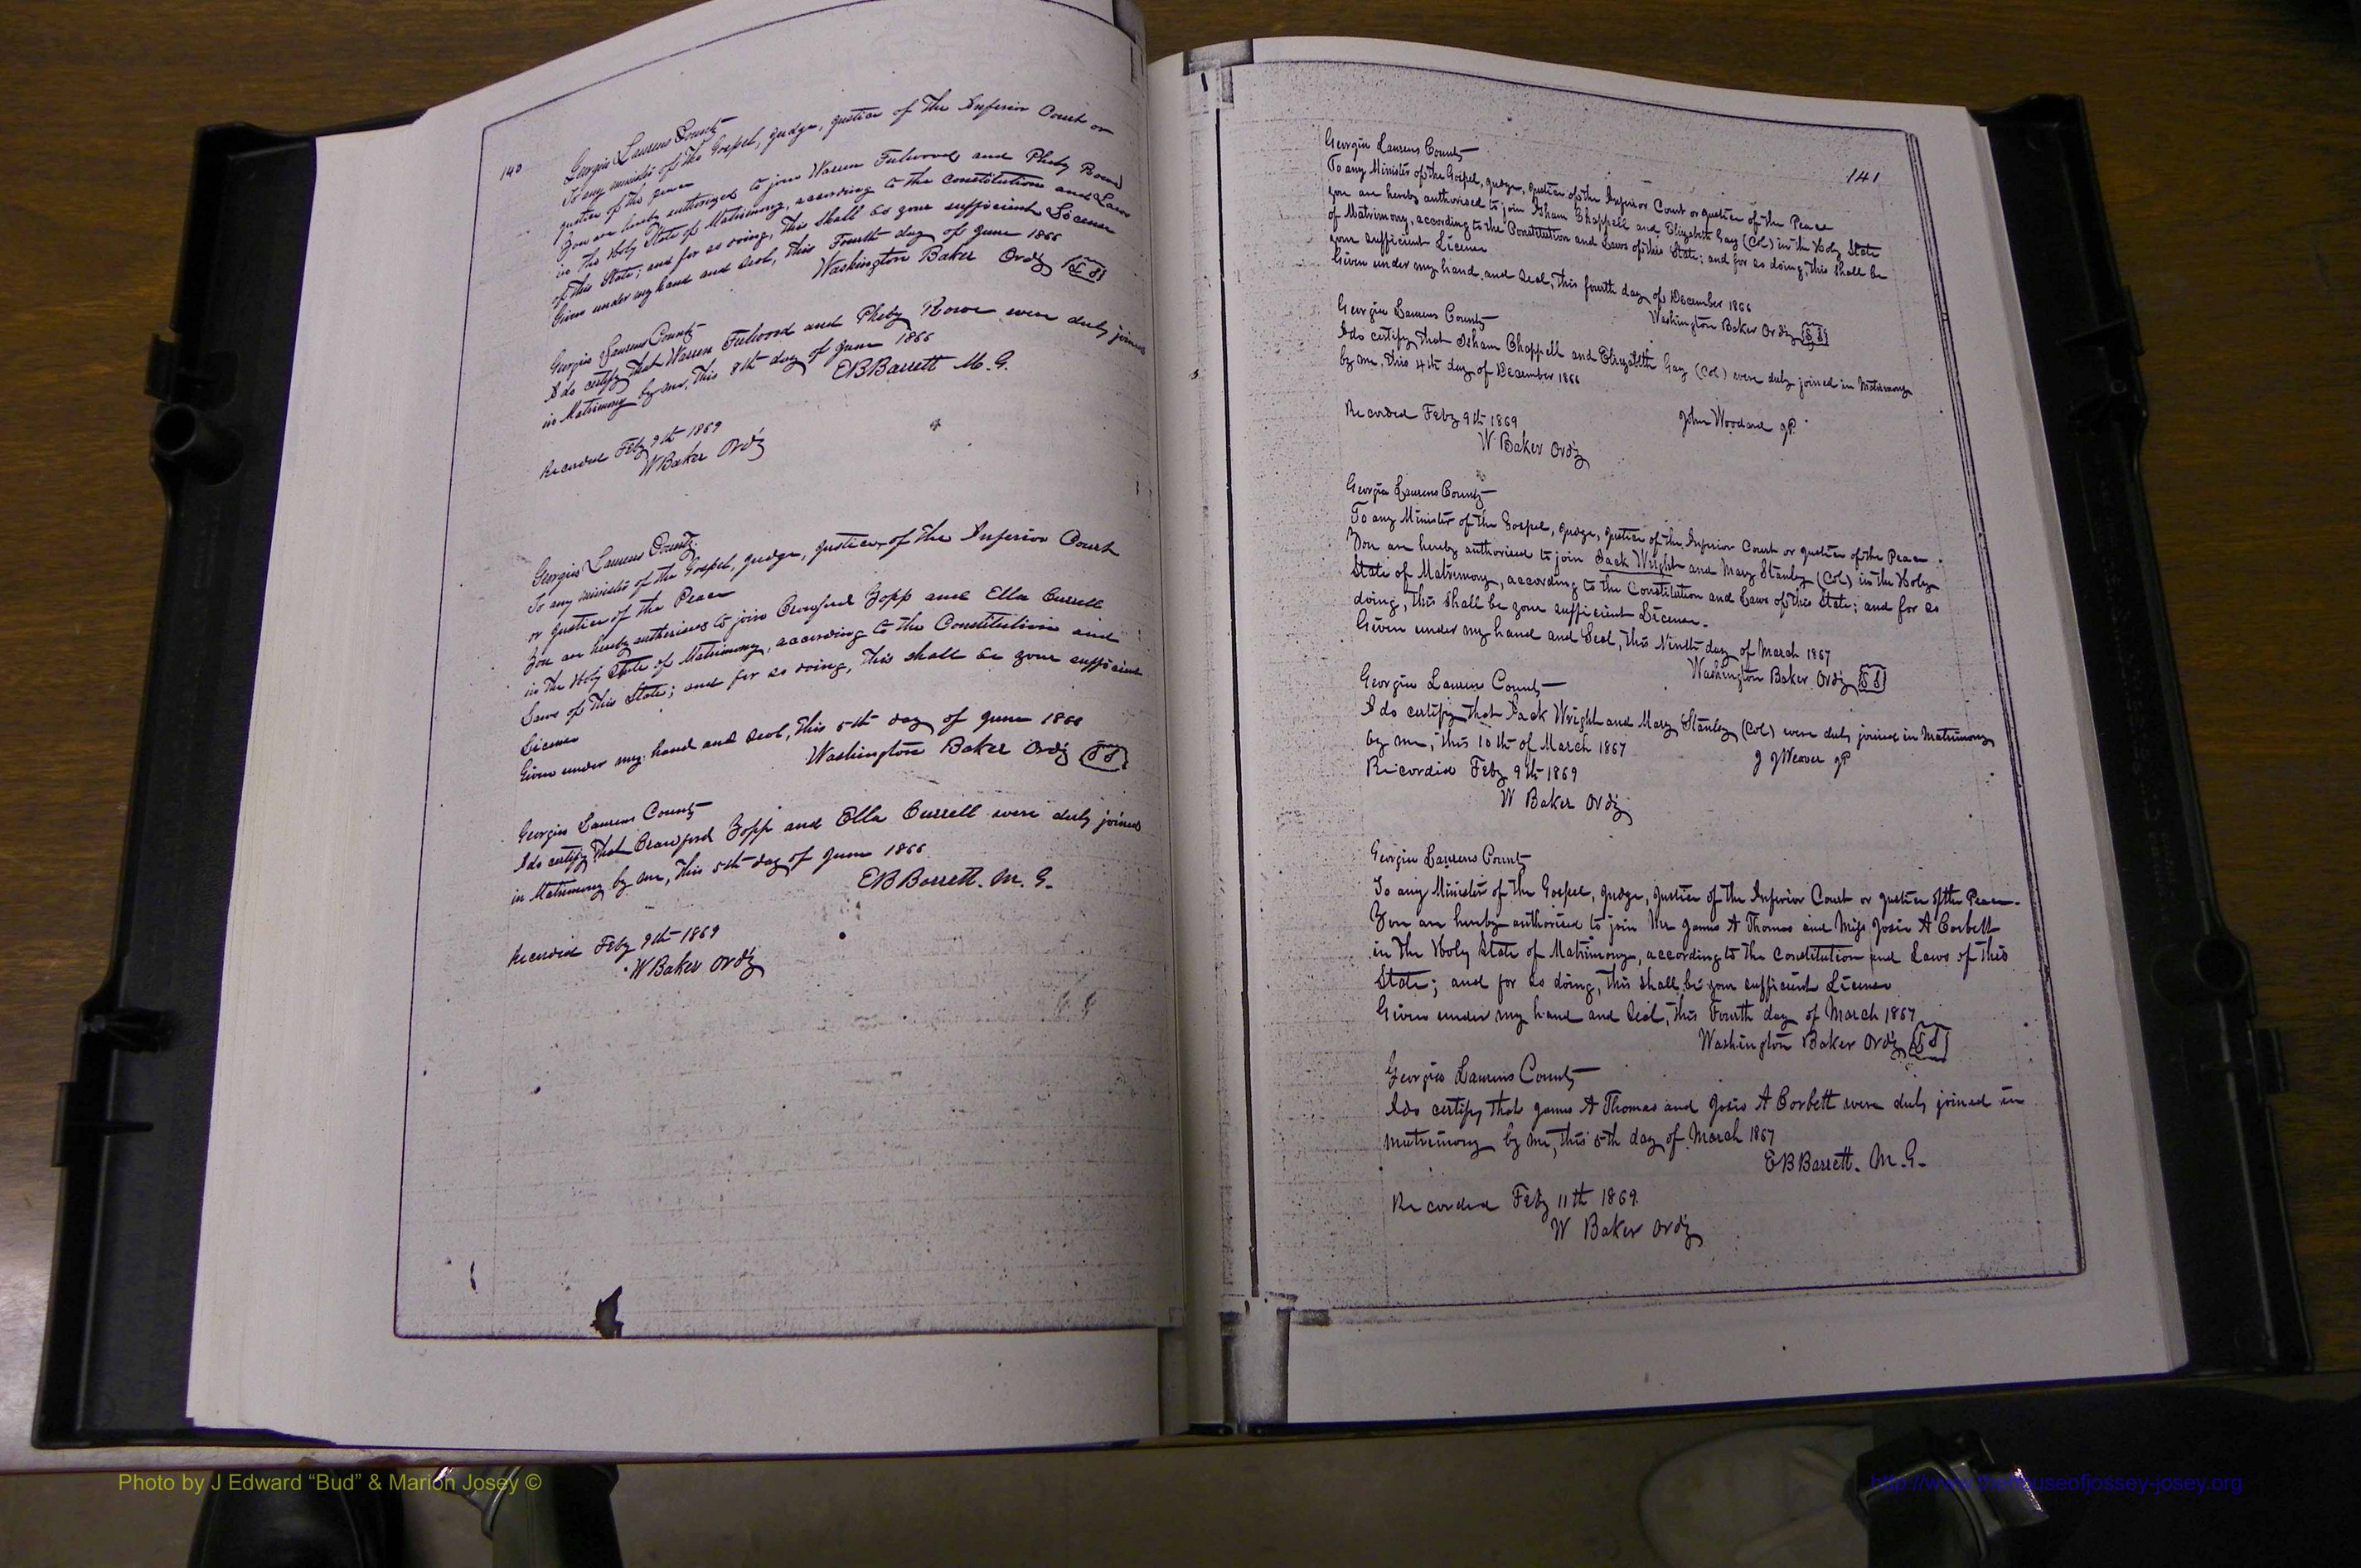 140
Georgia Laurens County
To any minister of the Gospel, Judge, Justice of the Inferior Court or
Justice of the peace
You are hereby authorized to join Warren Fulwood and Pheby Rowe
in the Holy State of Matrimony, according to the Constitution and Laws
of this State; and for so doing, this shall be your sufficient License
Given under my hand and seal, this Fourth day of June 1866
Washington Baker Ordy LS
Georgia Laurens County
I do certify that Warren Fulwood and Pheby Rowe were duly joined
in Matrimony by me, this 8th day of June 1866
EB Barrett M. G.
Recorded Feby 9th 1869
W Baker Ordy
Georgia Laurens County
To any minister of the Gospel, Judge, Justice of the Inferior Court
or Justice of the Peace
You are hereby authorised to join Crawford Yopp and Ella Currell
in the Holy State of Matrimony, according to the Constitution and
Laws of this State; and for so doing, this shall be your sufficient
License
Given under my hand and seal, this 5th day of June 1866
Washington Baker Ordy LS
Georgia Laurens County
I do certify that Crawford Yopp and Ella Currell were duly joined
in Matrimony by me, this 5th day of June 1866
EB Barrett. M. G.
Recorded Feby 9th 1869
W Baker Ordy
141
Georgia Laurens County
To any Minister of the Gospel, Judge, Justice of the Inferior Court or Justice of the Peace
You are hereby authorised to join Isham Chappell and Elizabeth Gay (Col) in the Holy State
of Matrimony, according to the Constitution and Laws of this State; and for so doing, this shall be
your sufficient License
Given under my hand and Seal, this fourth day of December 1866
Washington Baker Ordy LS
Georgia Laurens County
I do certify that Isham Chappell and Elizabeth Gay (Col) were duly joined in Matrimony
by me, this 4th day of December 1866
John Woodard JP.
Recorded Feby 9th 1869
W Baker Ordy
Georgia Laurens County
To any Minister of the Gospel, Judge, Justice of the Inferior Court or Justice of the Peace.
You are hereby authorised to join Jack Wright and Mary Stanley (Col) in the Holy
State of Matrimony, according to the Constitution and Laws of this State; and for so
doing, this shall be your sufficient License.
Given under my hand and Seal, this Ninth day of March 1867
Washington Baker Ordy LS
Georgia Laurens County
I do certify that Jack Wright and Mary Stanley (Col) were duly joined in Matrimony
by me, this 10th of March 1867
J J Weaver JP
Recorded Feby 9th 1869
W Baker Ordy
Georgia Laurens County
To any Minister of the Gospel, Judge, Justice of the Inferior Court or Justice of the Peace.
You are hereby authorised to join Mr James A Thomas and Miss Josie A Corbett
in the Holy State of Matrimony, according to the Constitution and Laws of this
State; and for so doing, this shall be your sufficient License
Given under my hand and Seal, this Fourth day of March 1867
Washington Baker Ordy LS
Georgia Laurens County
I do certify that James A Thomas and Josie A Corbett were duly joined in
matrimony by me, this 5th day of March 1867
EB Barrett. M. G.
Recorded Feby 11th 1869
W Baker Ordy
Photo by J Edward “Bud” & Marion Josey ©
http://www.thehouseofjossey-josey.org